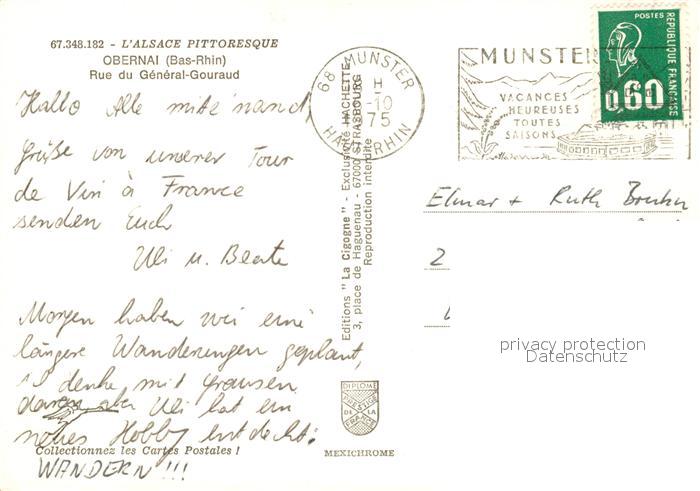 67.348.182 - L'ALSACE PITTORESQUE
OBERNAI (Bas-Rhin)
Rue du Général-Gouraud
Hallo Alle mite'nand
Grüße von unserer Tour
de Vin à France
senden Euch
Uli u. Beate
Morgen haben wir eine
längere Wanderungen geplant,
ich denke mit grausen
daran aber Uli hat ein
neues Hobby entdeckt:
WANDERN!!!
Collectionnez les Cartes Postales !
Editions "La Cigogne" - Exclusivité HACHETTE
3, place de Haguenau - 67000 STRASBOURG
Reproduction interdite
DIPLOME
PRESTIGE
DE LA
FRANCE
MEXICHROME
68 MUNSTER
H
-10
75
HAUT RHIN
MUNSTER
VACANCES
HEUREUSES
TOUTES
SAISONS
POSTES
REPUBLIQUE FRANÇAISE
0,60
Elmar + Ruth
2
privacy protection
Datenschutz